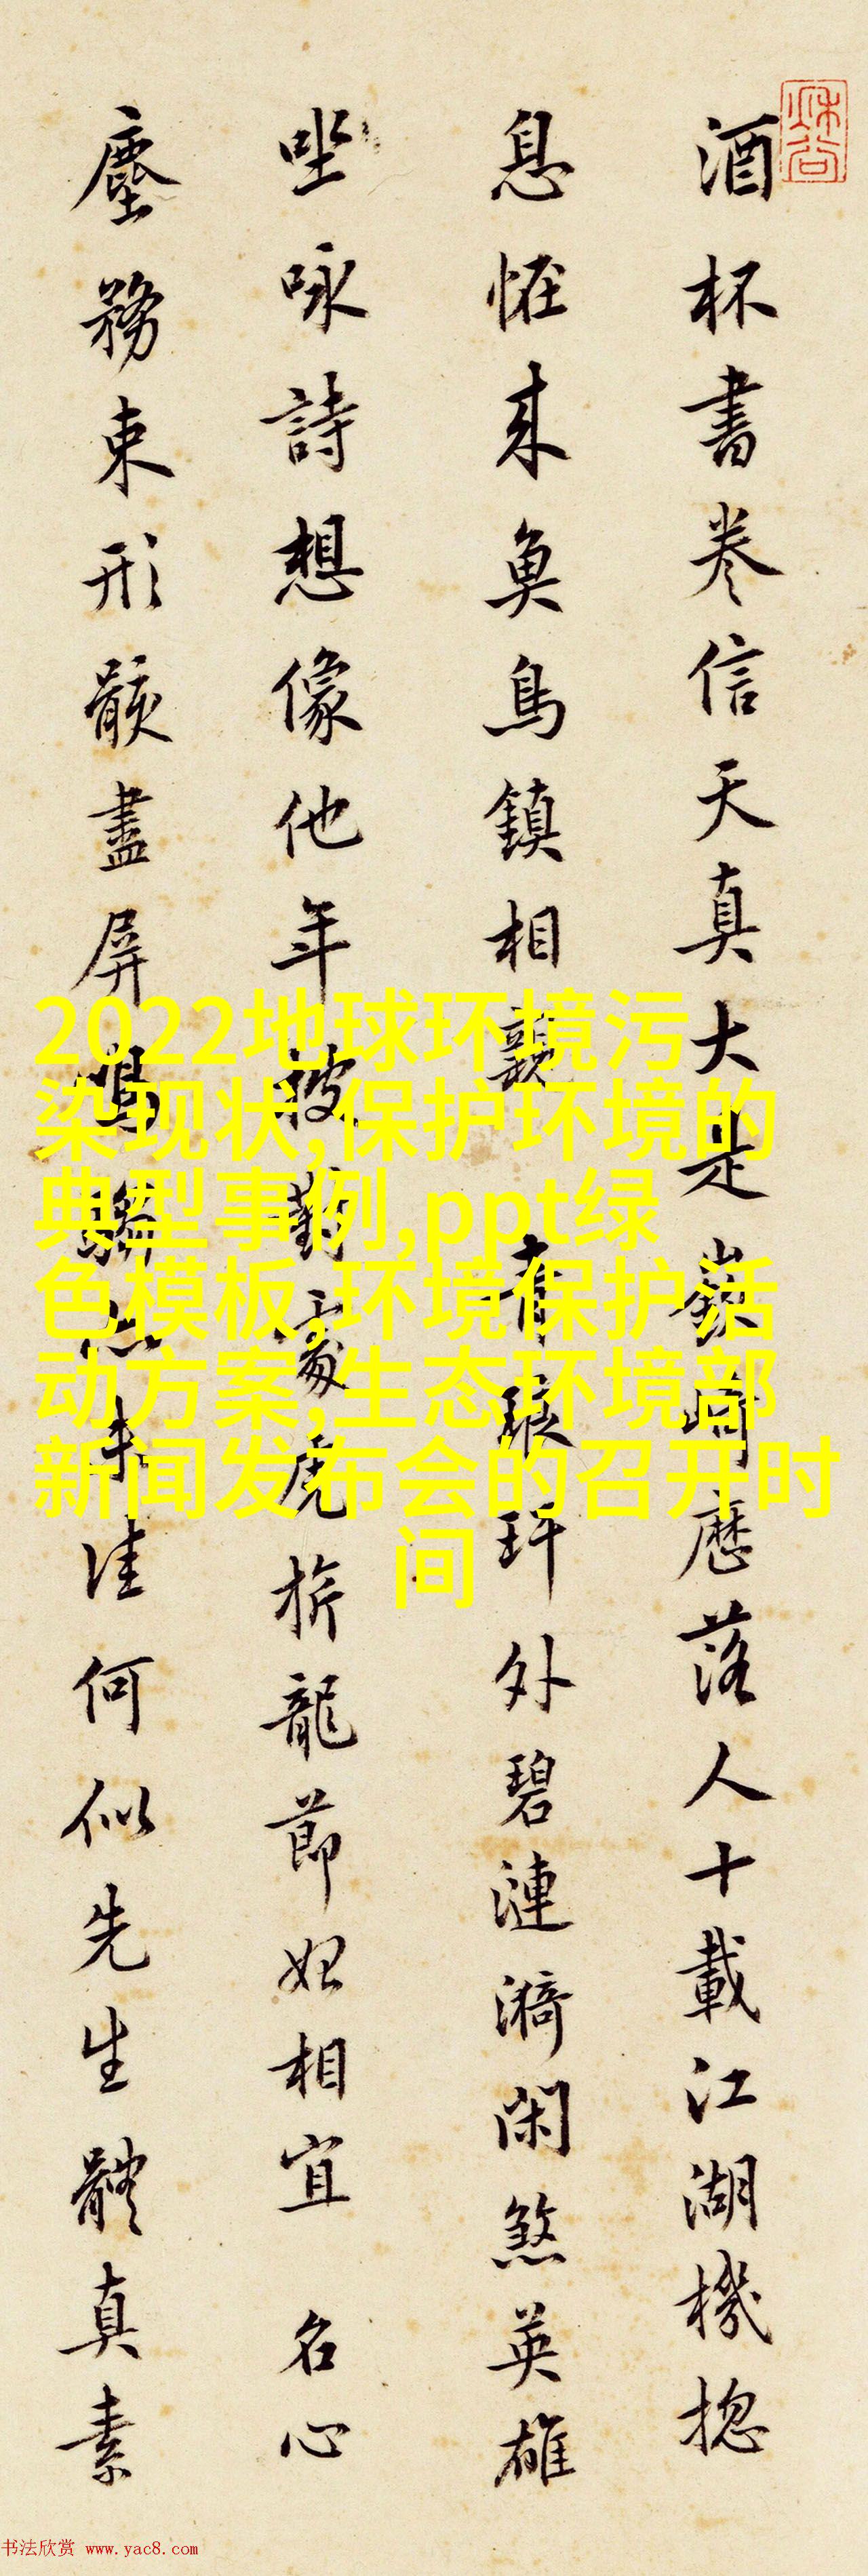 酒杯書卷信天真大是嶔崎歷落人十載江湖機揔
息恠来魚鳥鎮相親 青琅玕外碧漣漪閑煞英雄
坐咏詩想像他年披對處虎旂龍節妃相宜 名心
塵務束形骸盡屏未佳何似先生體真素
2022地球环境污
染现状,保护环境的
典型事例,ppt绿
色模板,环境保护活
动方案,生态环境部
新闻发布会的召开时
间
书法欣赏 www.yac8.com